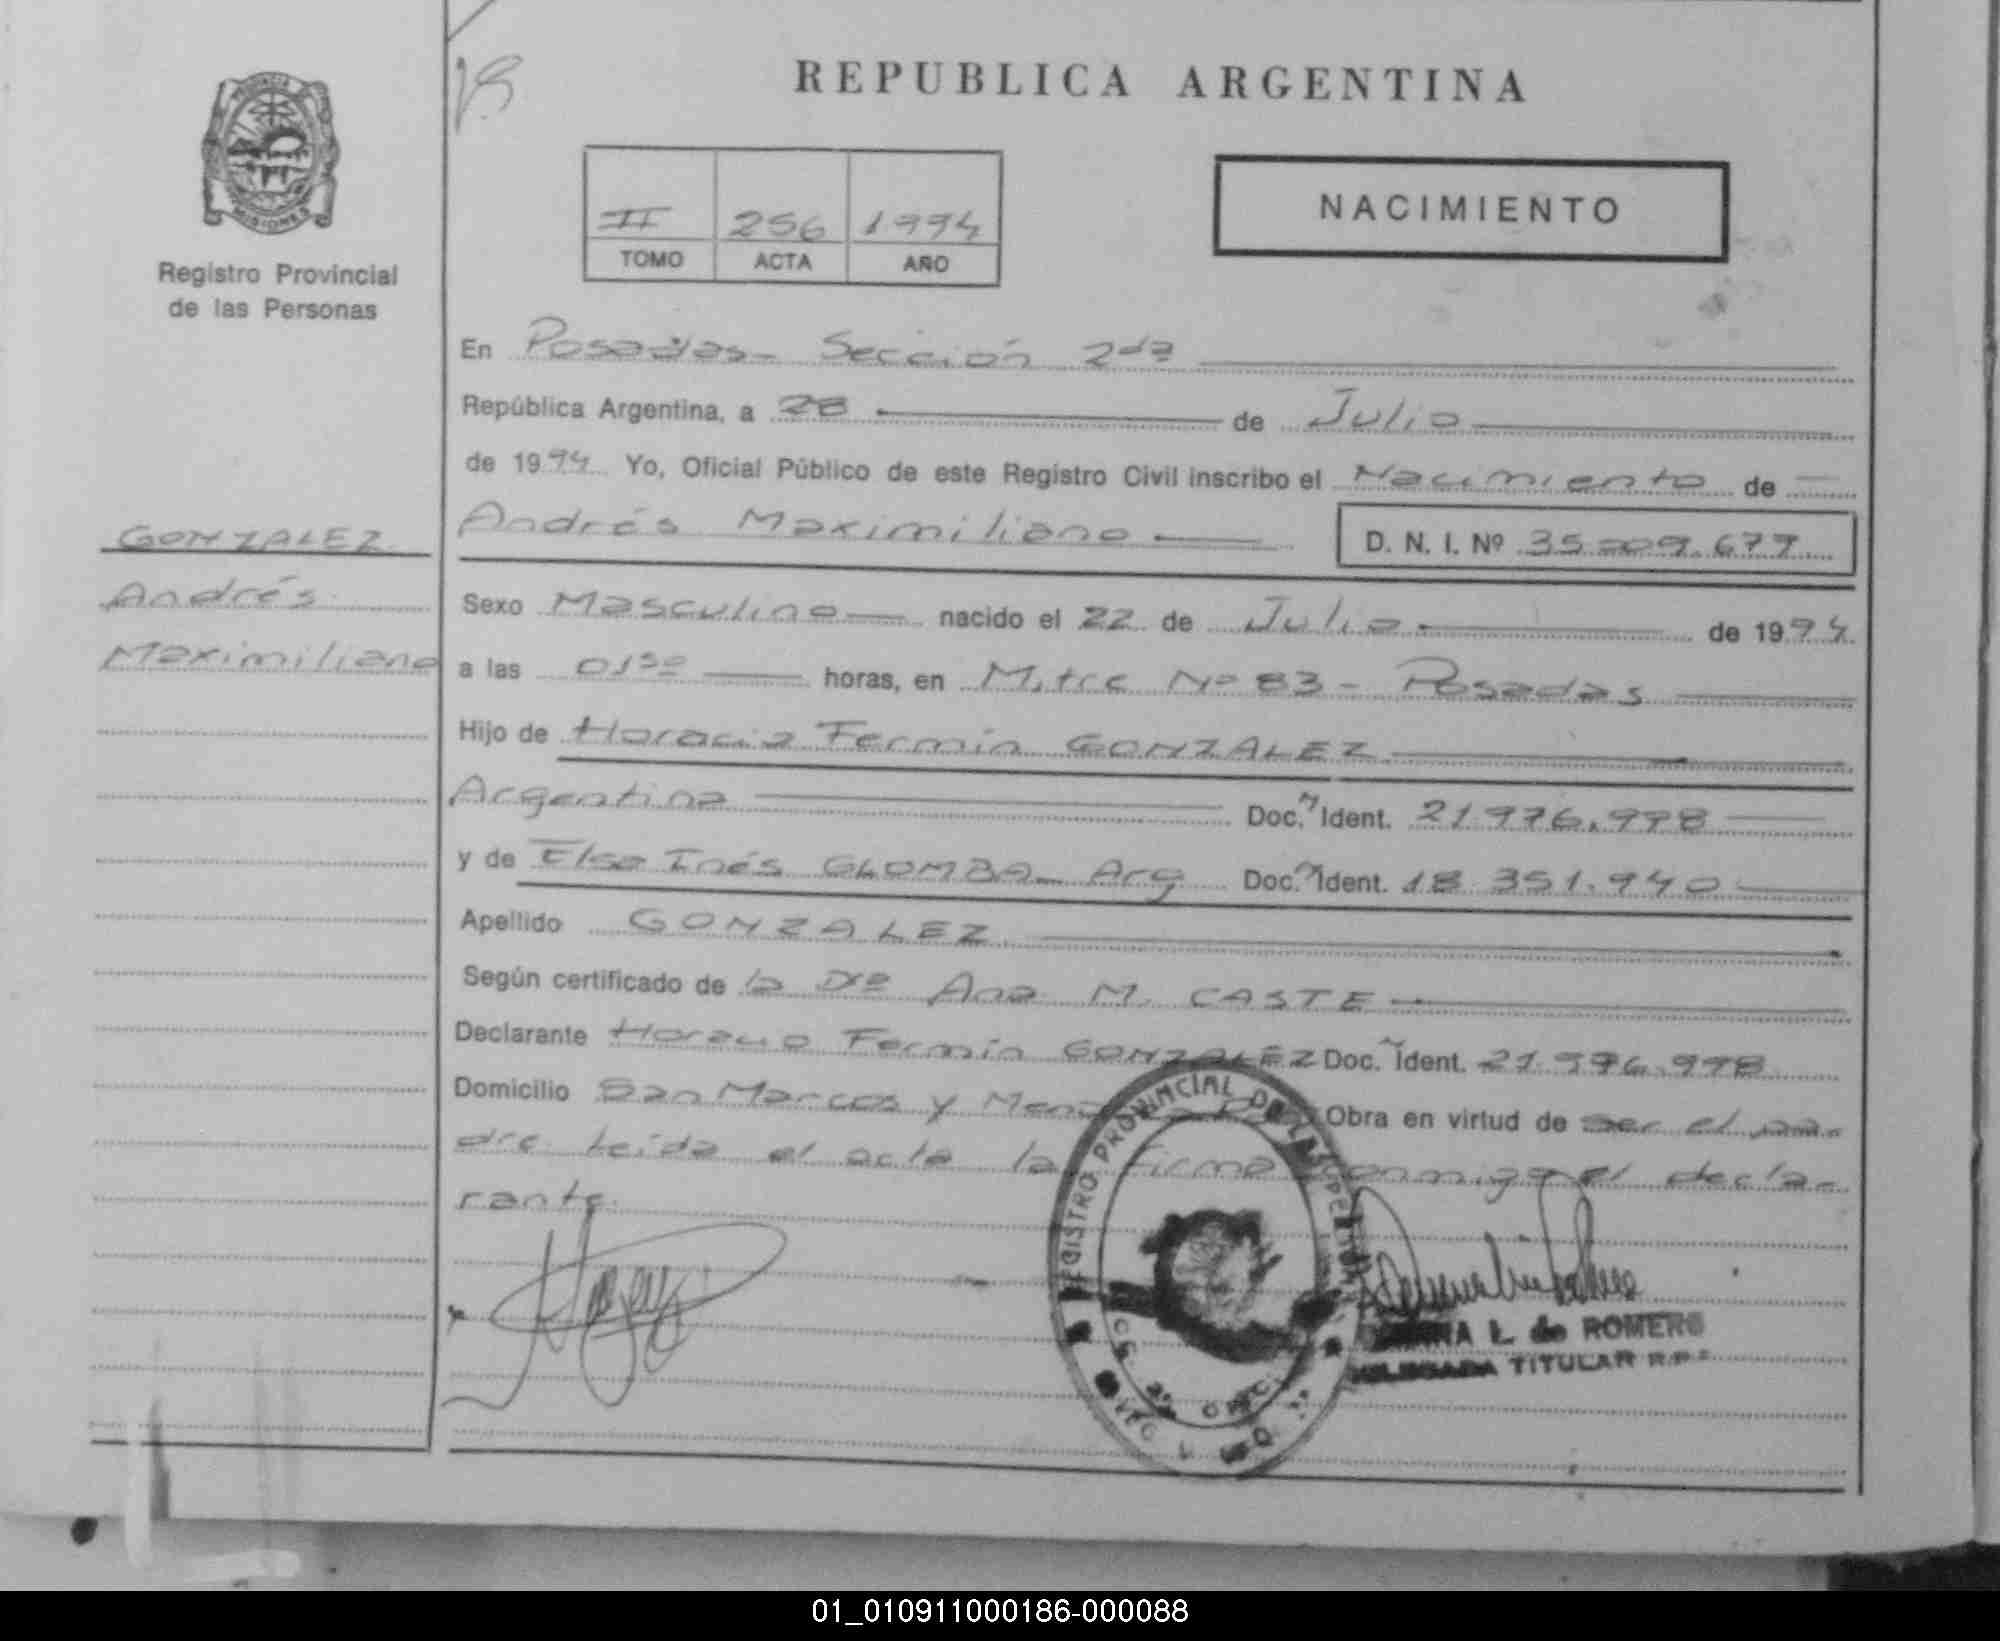 REPUBLICA ARGENTINA
PROVINCIA
MISIONES
Registro Provincial
de las Personas
II 256 1994
TOMO ACTA AÑO
NACIMIENTO
En Posadas - Sección 2da
República Argentina, a 28 de Julio
de 1994 Yo, Oficial Público de este Registro Civil inscribo el Nacimiento de
Andrés Maximiliano D. N. I. Nº 35.009.677
GONZALEZ
Andrés
Maximiliano
Sexo Masculino nacido el 22 de Julio de 1994
a las 0150 horas, en Mitre Nº 83 - Posadas
Hijo de Horacio Fermín GONZALEZ
Argentina Doc. N Ident. 21.976.998
y de Elsa Inés GLOMBA - Arg Doc. N Ident. 18.351.940
Apellido GONZALEZ
Según certificado de la Dra Ana M. CASTE
Declarante Horacio Fermín GONZALEZ Doc. N Ident. 21.976.998
Domicilio San Marcos y Obra en virtud de ser el pa-
dre. Leída el acta la firma conmigo el decla-
rante.
REGISTRO PROVINCIAL DE LAS PERSONAS
L. de ROMERO
DELEGADA TITULAR R.P.
01_010911000186-000088